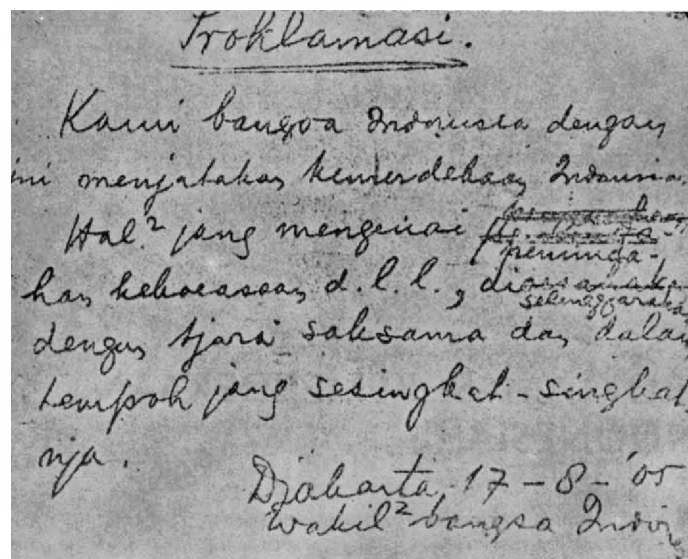 Proklamasi.
Kami bangsa Indonesia dengan
ini menjatakan kemerdekaan Indonesia.
Hal² jang mengenai
peminda-
han kekoeasaan d.l.l.,
selenggarakan
dengan tjara saksama dan dalam
tempoh jang sesingkat-singkat
nja.
Djakarta, 17-8-'05
Wakil² bangsa Indon